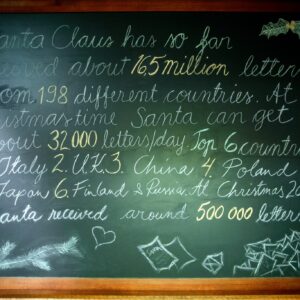 anta Claus has so far
ceived about 16.5 million letter
om 198 different countries. At
ristmas time Santa can get
out 32000 letters/day. Top 6 countri
Italy 2. U.K. 3. China 4. Poland
Japan 6. Finland & Russia. At Christmas 2
anta received around 500 000 letter